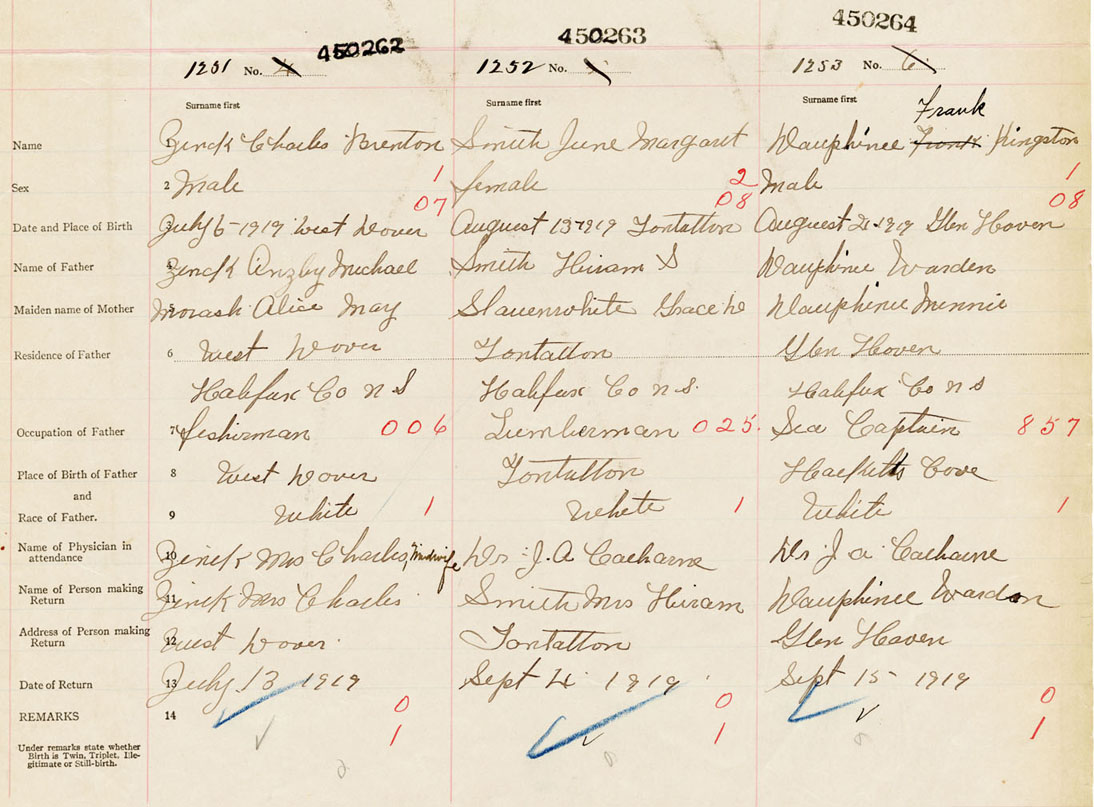 450262 450263 450264
1251 No. 4 1252 No. 1253 No. 6
Surname first Surname first Surname first
Frank
Name 1 Zinck Charles Brenton Smith June Margaret Dauphinee Frank Kingston
Sex 2 Male 1 female 2 Male 1
07 08 08
Date and Place of Birth July 6-1919 West Dover August 13-1919 Tontallon August 21-1919 Glen Haven
Name of Father 4 Zinck Michael Smith Hiram S Dauphinee Warden
Maiden name of Mother 5 Morash Alice May Slauenwhite Grace Dauphinee Minnie
Residence of Father 6 West Dover Tontallon Glen Haven
Halifax Co N S Halifax Co N S. Halifax Co N S
Occupation of Father 7 fisherman 006 Lumberman 025. Sea Captain 857
Place of Birth of Father 8 West Dover Tontallon Hacketts Cove
and
Race of Father. 9 White 1 White 1 White 1
Name of Physician in attendance 10 Zinck Mrs Charles, Midwife Dr J. A Dr J A
Name of Person making Return 11 Zinck Mrs Charles Smith Mrs Hiram Dauphinee Warden
Address of Person making Return 12 West Dover Tontallon Glen Haven
Date of Return 13 July 13 1919 Sept 4 1919 Sept 15 1919
REMARKS 14 0 0 0
1 1 1
Under remarks state whether
Birth is Twin, Triplet, Ille-
gitimate or Still-birth.